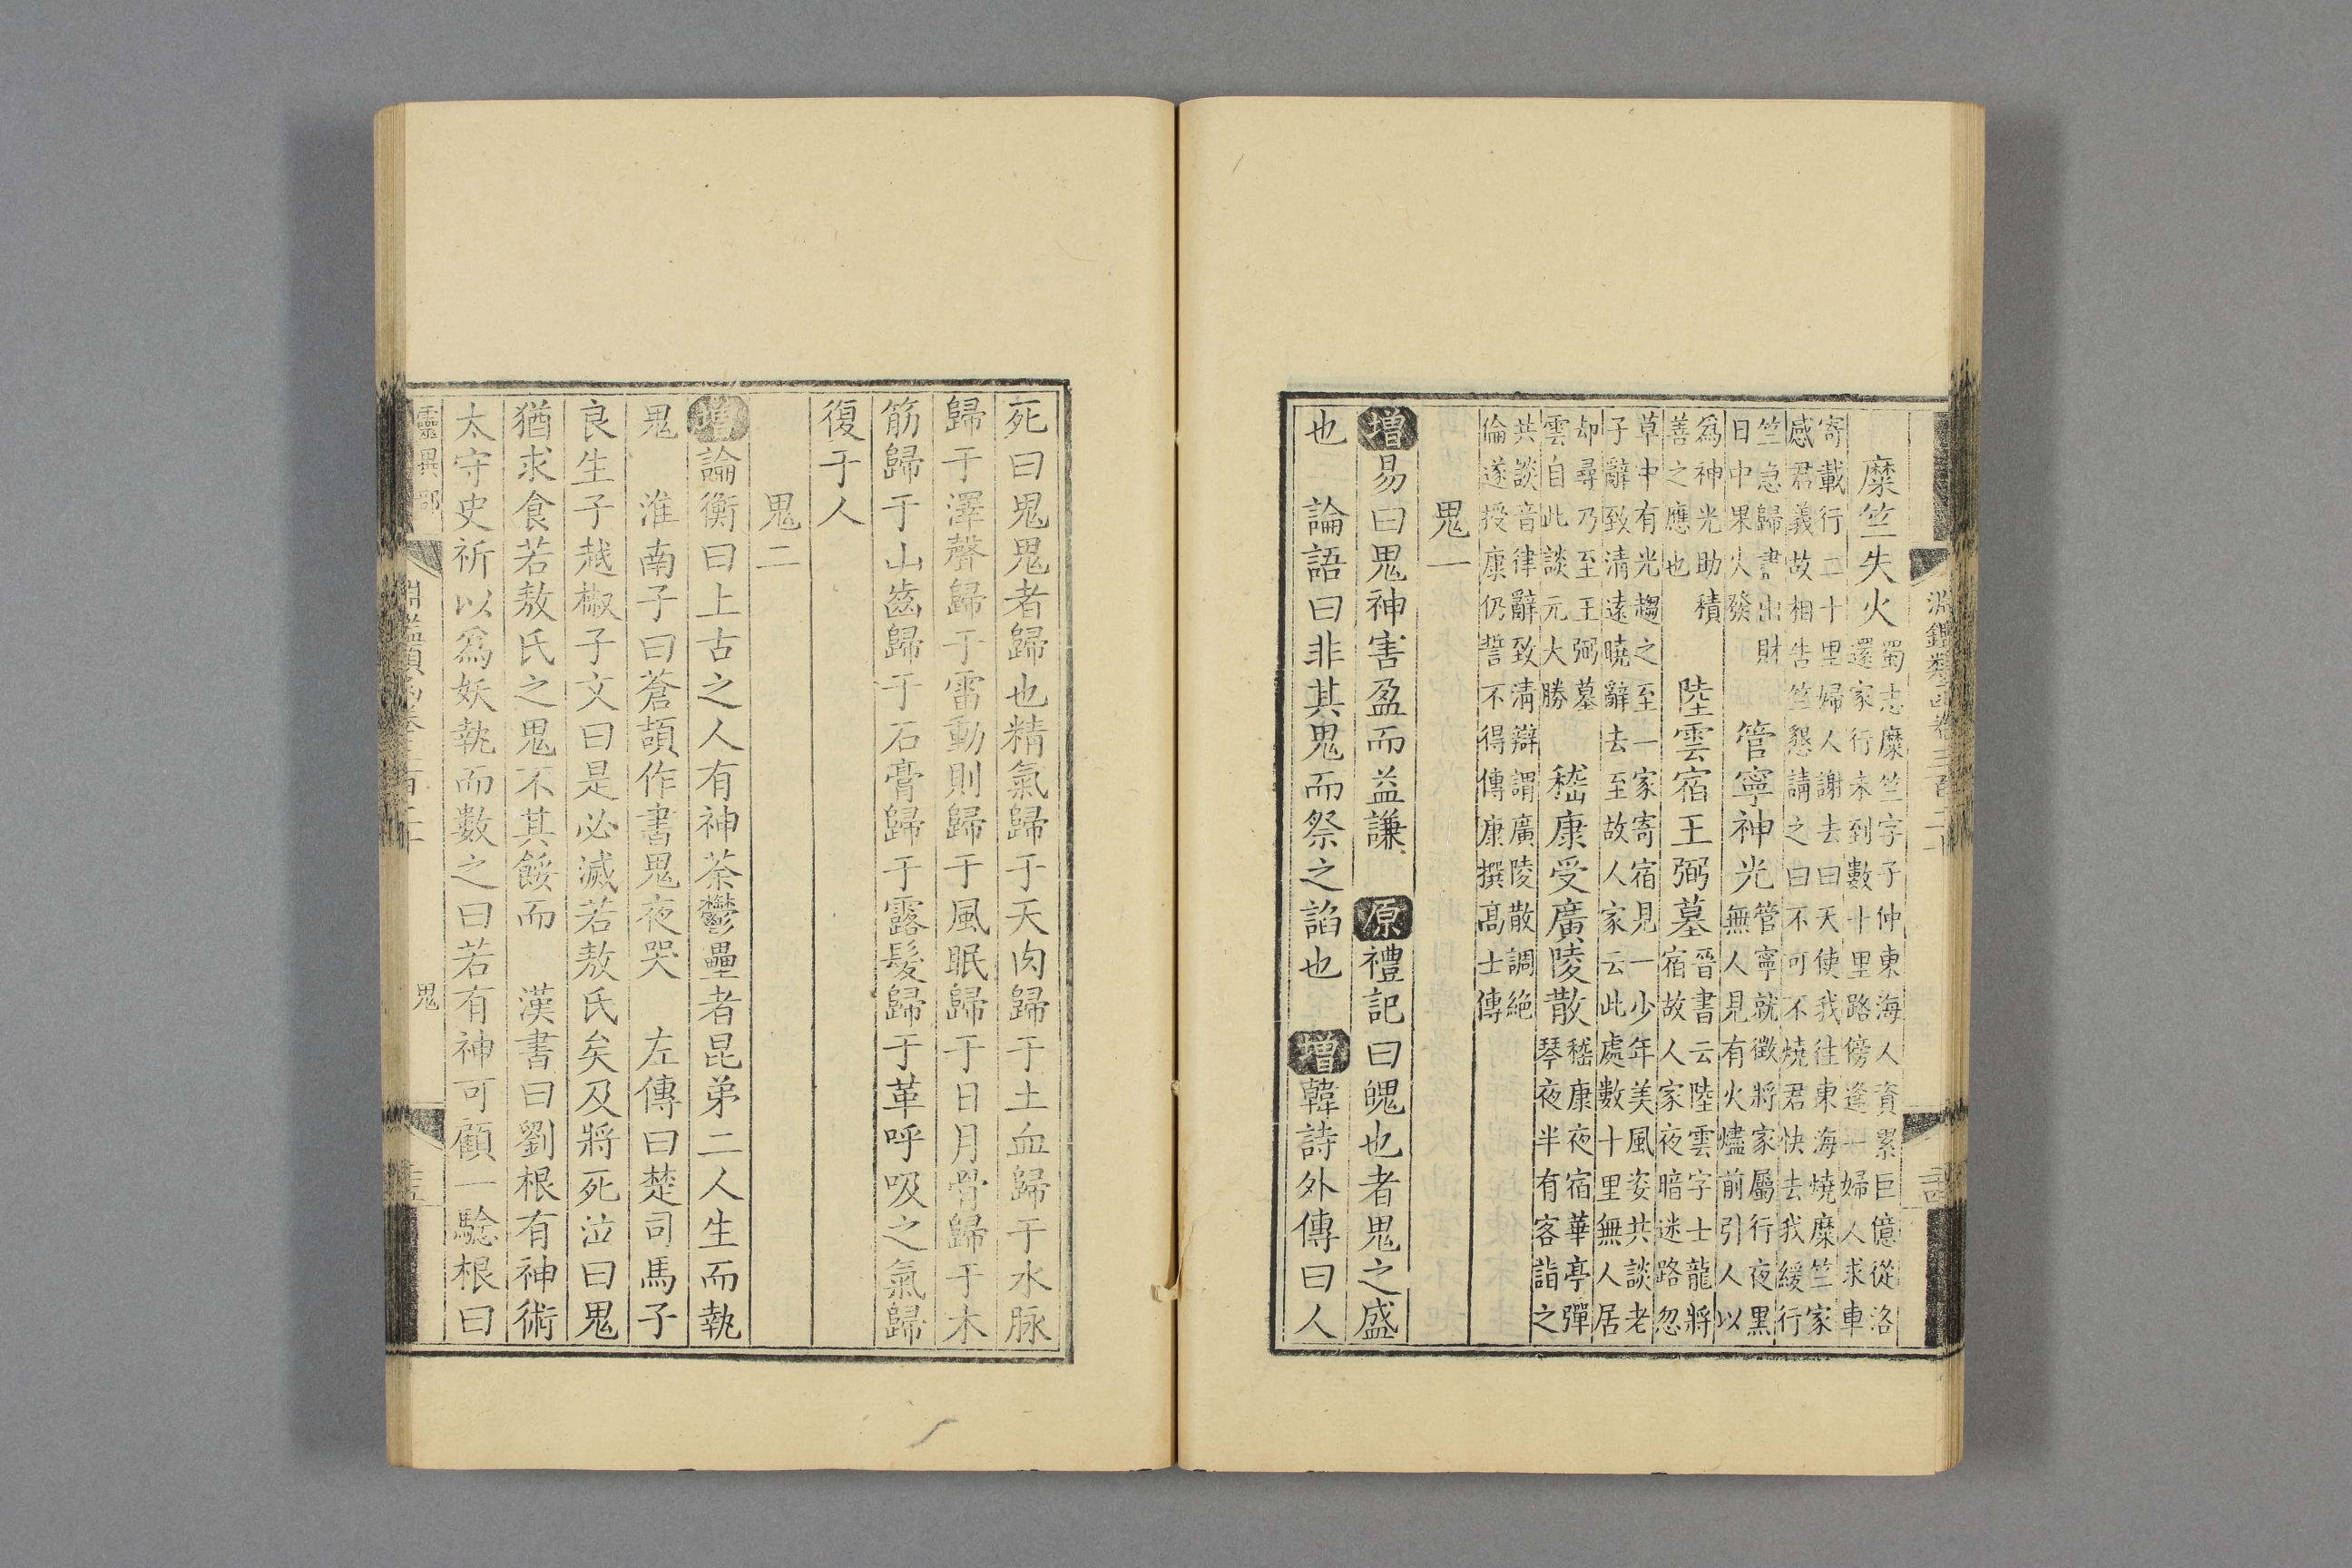 淵鑑類函卷三百二十
糜竺失火
蜀志糜竺字子仲東海人資累巨億從洛
還家行未到數十里路傍逢一婦人求車
寄載行二十里婦人謝去曰天使我往東海燒糜竺家
感君義故相告竺懇請之曰不可不燒君快去我緩行
竺急歸書出財
日中果火發
管寧神光
管寧就徵將家屬行夜黑
無人見有火燼前引人以
爲神光助積
善之應也
陸雲宿王弼墓
晉書云陸雲字士龍將
宿故人家夜暗迷路忽
草中有光趨之至一家寄宿見一少年美風姿共談老
子辭致清遠曉辭去至故人家云此處數十里無人居
却尋乃至王弼墓
雲自此談元大勝
嵇康受廣陵散
嵇康夜宿華亭彈
琴夜半有客詣之
共談音律辭致清辯謂廣陵散調絶
倫遂授康仍誓不得傳康撰高士傳
鬼一
增易曰鬼神害盈而益謙 原禮記曰魄也者鬼之盛
也 論語曰非其鬼而祭之諂也 增韓詩外傳曰人
死曰鬼鬼者歸也精氣歸于天肉歸于土血歸于水脉
歸于澤聲歸于雷動則歸于風眠歸于日月骨歸于木
筋歸于山齒歸于石膏歸于露髮歸于革呼吸之氣歸
復于人
鬼二
增論衡曰上古之人有神荼鬱壘者昆弟二人生而執
鬼 淮南子曰蒼頡作書鬼夜哭 左傳曰楚司馬子
良生子越椒子文曰是必滅若敖氏矣及將死泣曰鬼
猶求食若敖氏之鬼不其餒而 漢書曰劉根有神術
太守史祈以爲妖執而數之曰若有神可顧一驗根曰
靈異部 淵鑑類函卷三百二十 鬼